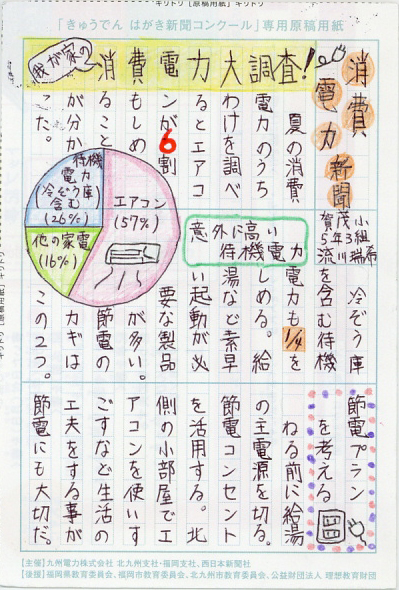 キリトリ【原稿用紙】キリトリ
「きゅうでん はがき新聞コンクール」専用原稿用紙
消費
電力
新聞
賀茂小
5年3組
流川瑞希
我が家の
消費電力大調査!
夏の消費
電力のうち
わけを調べ
るとエアコ
ンが6割
もしめ
ること
が分か
った。
エアコン
(57%)
待機
電力
(冷ぞう庫
含む)
(26%)
他の家電
(16%)
意外に高い
待機電力
冷ぞう庫
を含む待機
電力も1/4を
しめる。給
湯など素早
い起動が必
要な製品
が多い。
節電の
カギは
この2つ。
節電プラン
を考える
ねる前に給湯
の主電源を切る。
節電コンセント
を活用する。北
側の小部屋でエ
アコンを使いす
ごすなど生活の
工夫をする事が
節電にも大切だ。
【主催】九州電力株式会社 北九州支社・福岡支社、西日本新聞社
【後援】福岡県教育委員会、福岡市教育委員会、北九州市教育委員会、公益財団法人 理想教育財団